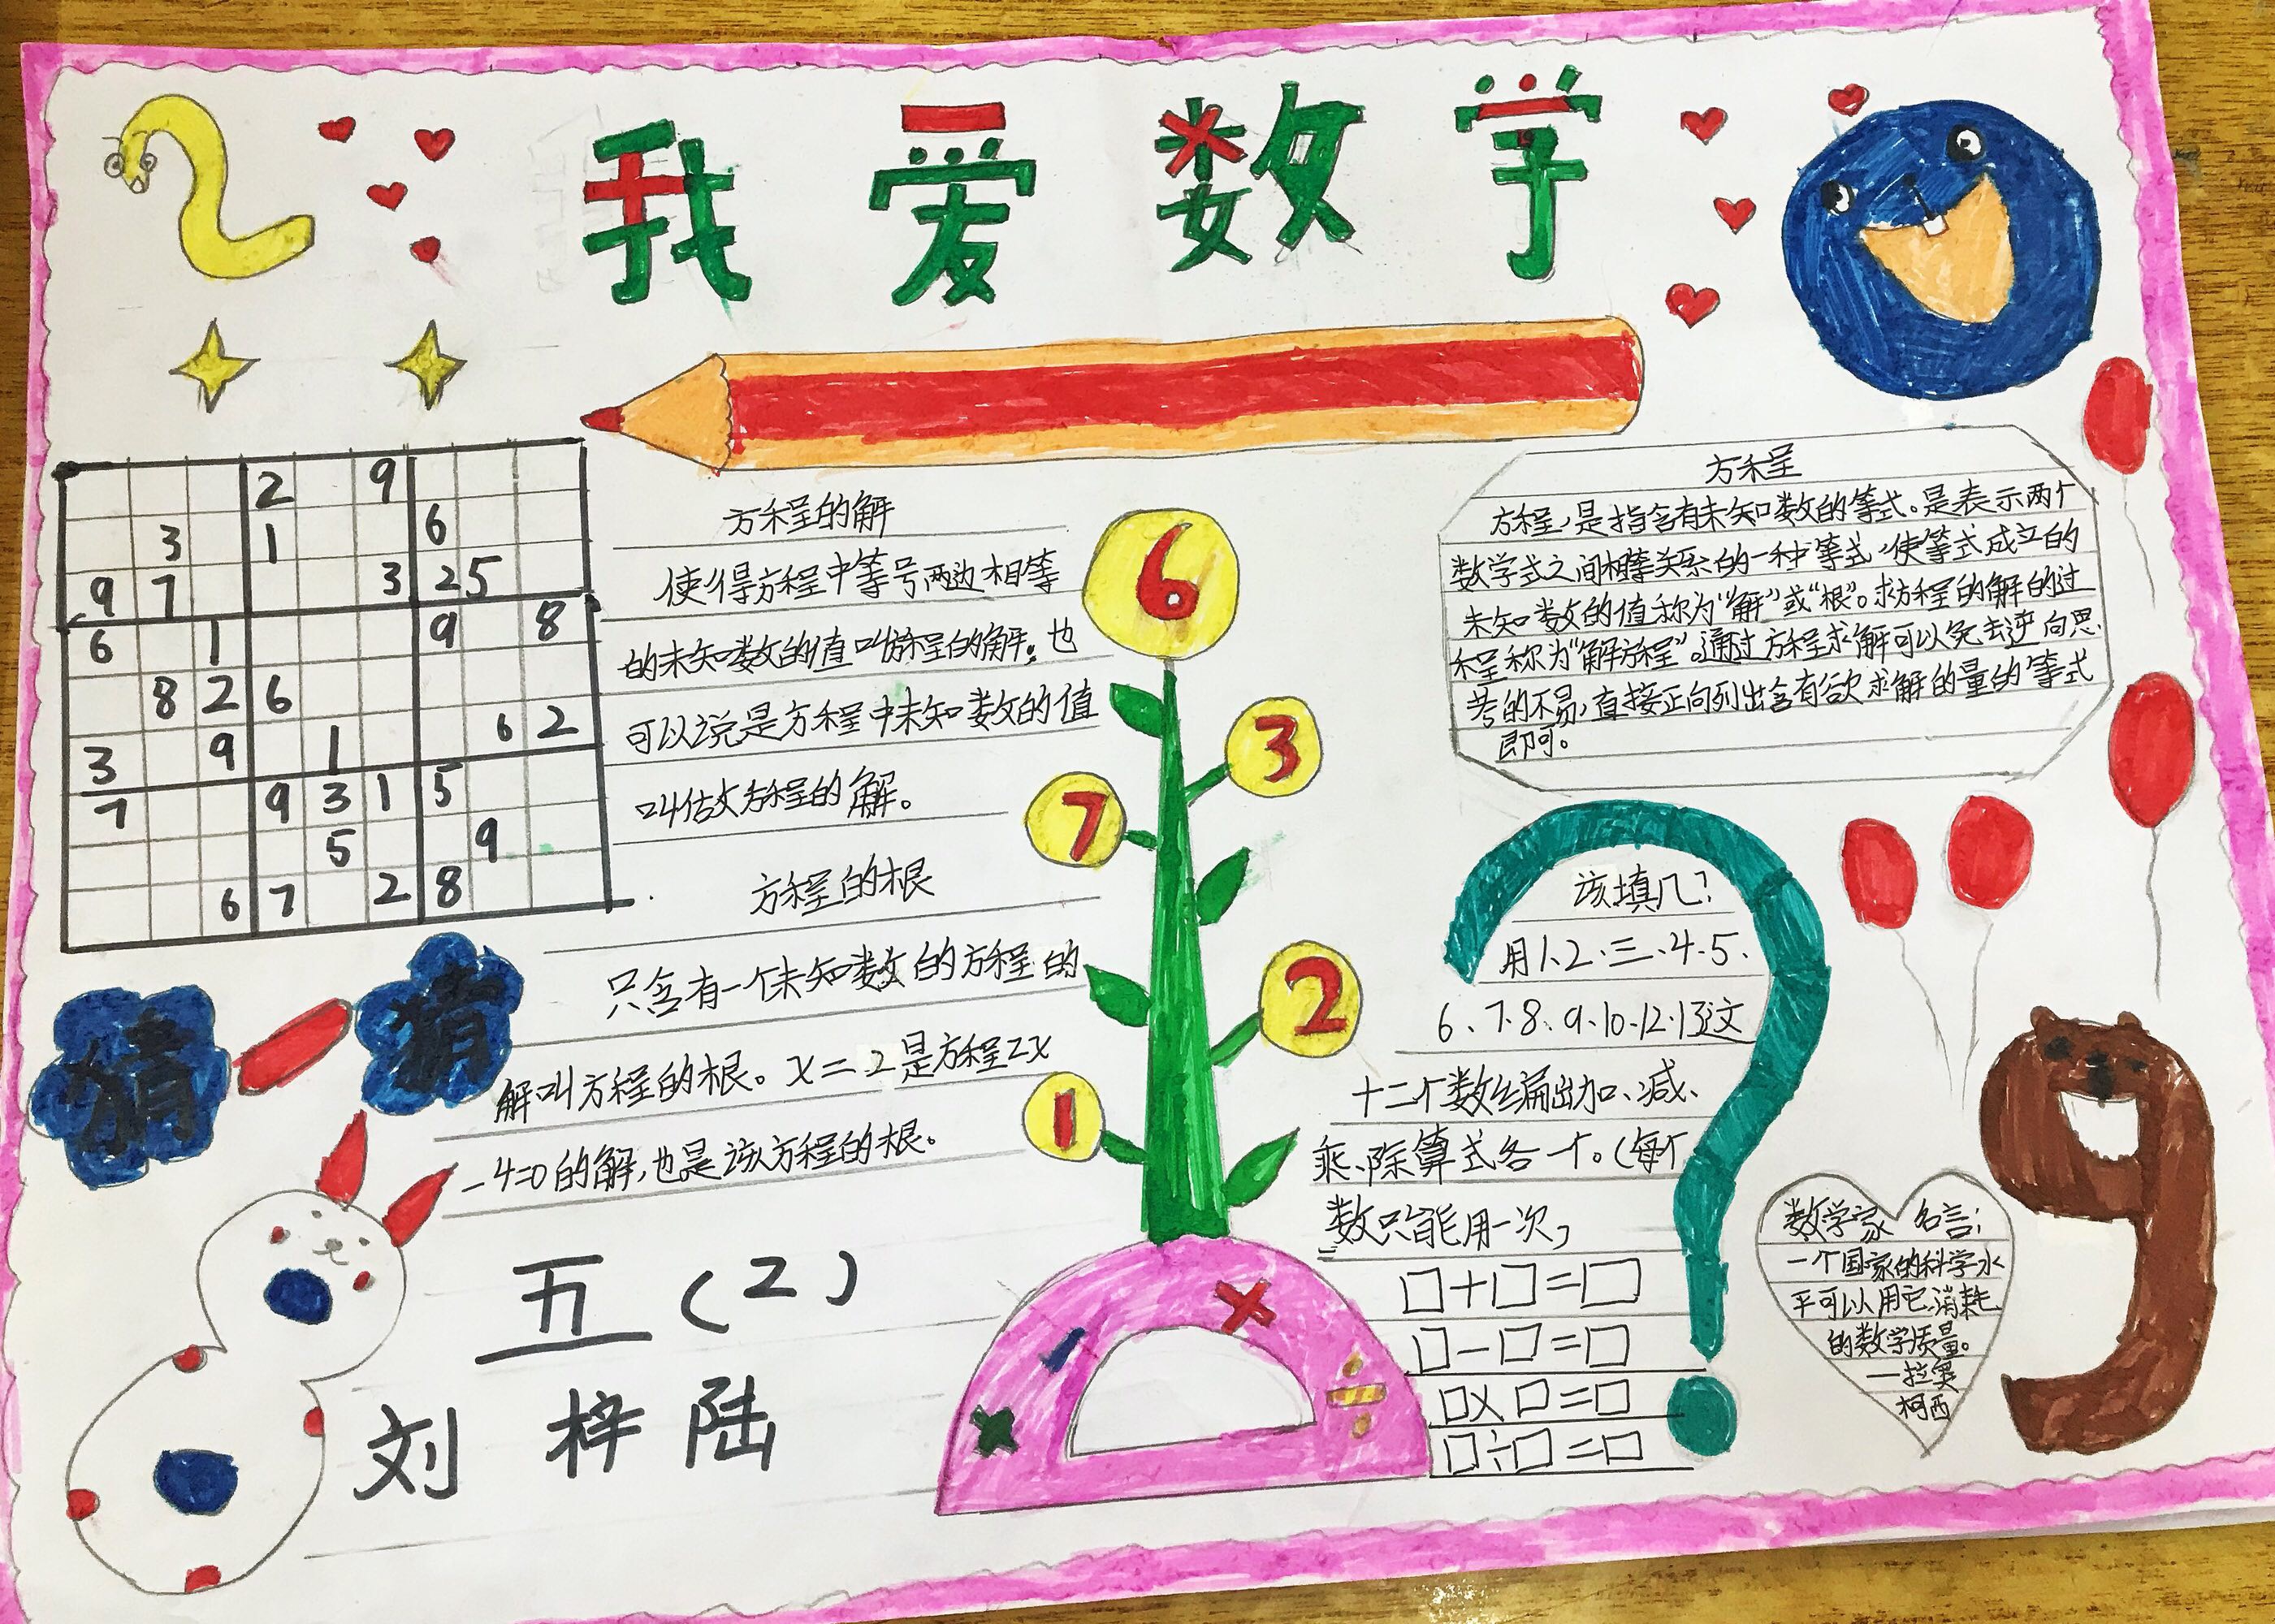 我爱数学
2 9
3 1 6
9 7 3 2 5
6 1 9 8
8 2 6
3 9 1 6 2
7 9 3 1 5
5 9
6 7 2 8
方程的解
使得方程中等号两边相等
的未知数的值叫方程的解。也
可以说是方程中未知数的值
叫做方程的解。
方程的根
只含有一个未知数的方程的
解叫方程的根。x=2是方程2x
-4=0的解,也是该方程的根。
猜一猜
五(2)
刘梓陆
6
3
7
2
1
- × ÷
方程
方程,是指含有未知数的等式。是表示两个
数学式之间相等关系的一种等式,使等式成立的
未知数的值称为“解”或“根”。求方程的解的过
程称为“解方程”。通过方程求解可以免去逆向思
考的不易,直接正向列出含有欲求解的量的等式
即可。
该填几?
用1、2、三、4、5、
6、7、8、9、10、12、13这
十二个数编出加、减、
乘、除算式各一个。(每个
数只能用一次)
□+□=□
□-□=□
□×□=□
□÷□=□
数学家名言:
一个国家的科学水
平可以用它消耗
的数学质量。
一拉奥
柯西
9